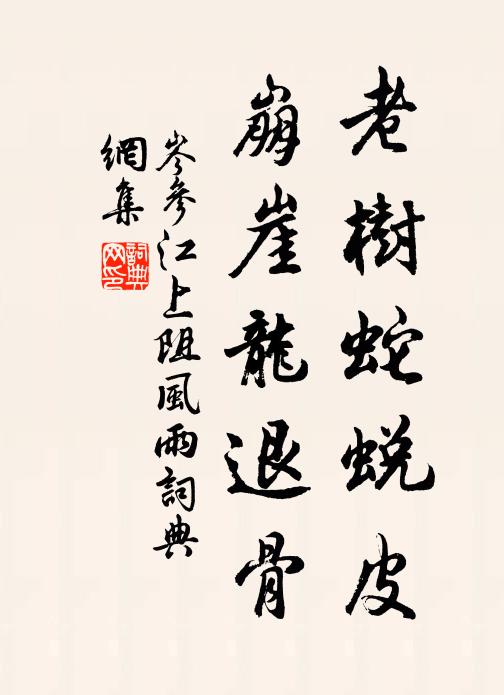 老樹蛇蛻皮
崩崖龍退骨
岑參江上阻風雨詞典
網集
詞典
网印